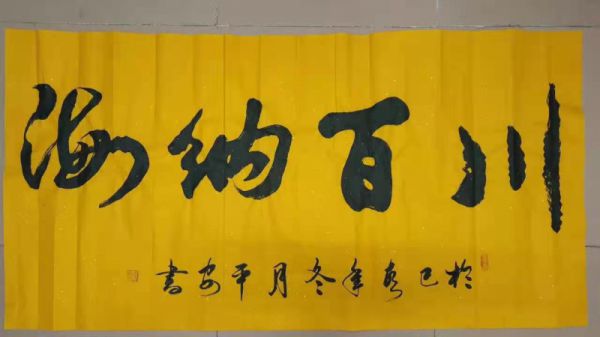 海纳百川
於己亥年冬月平安書